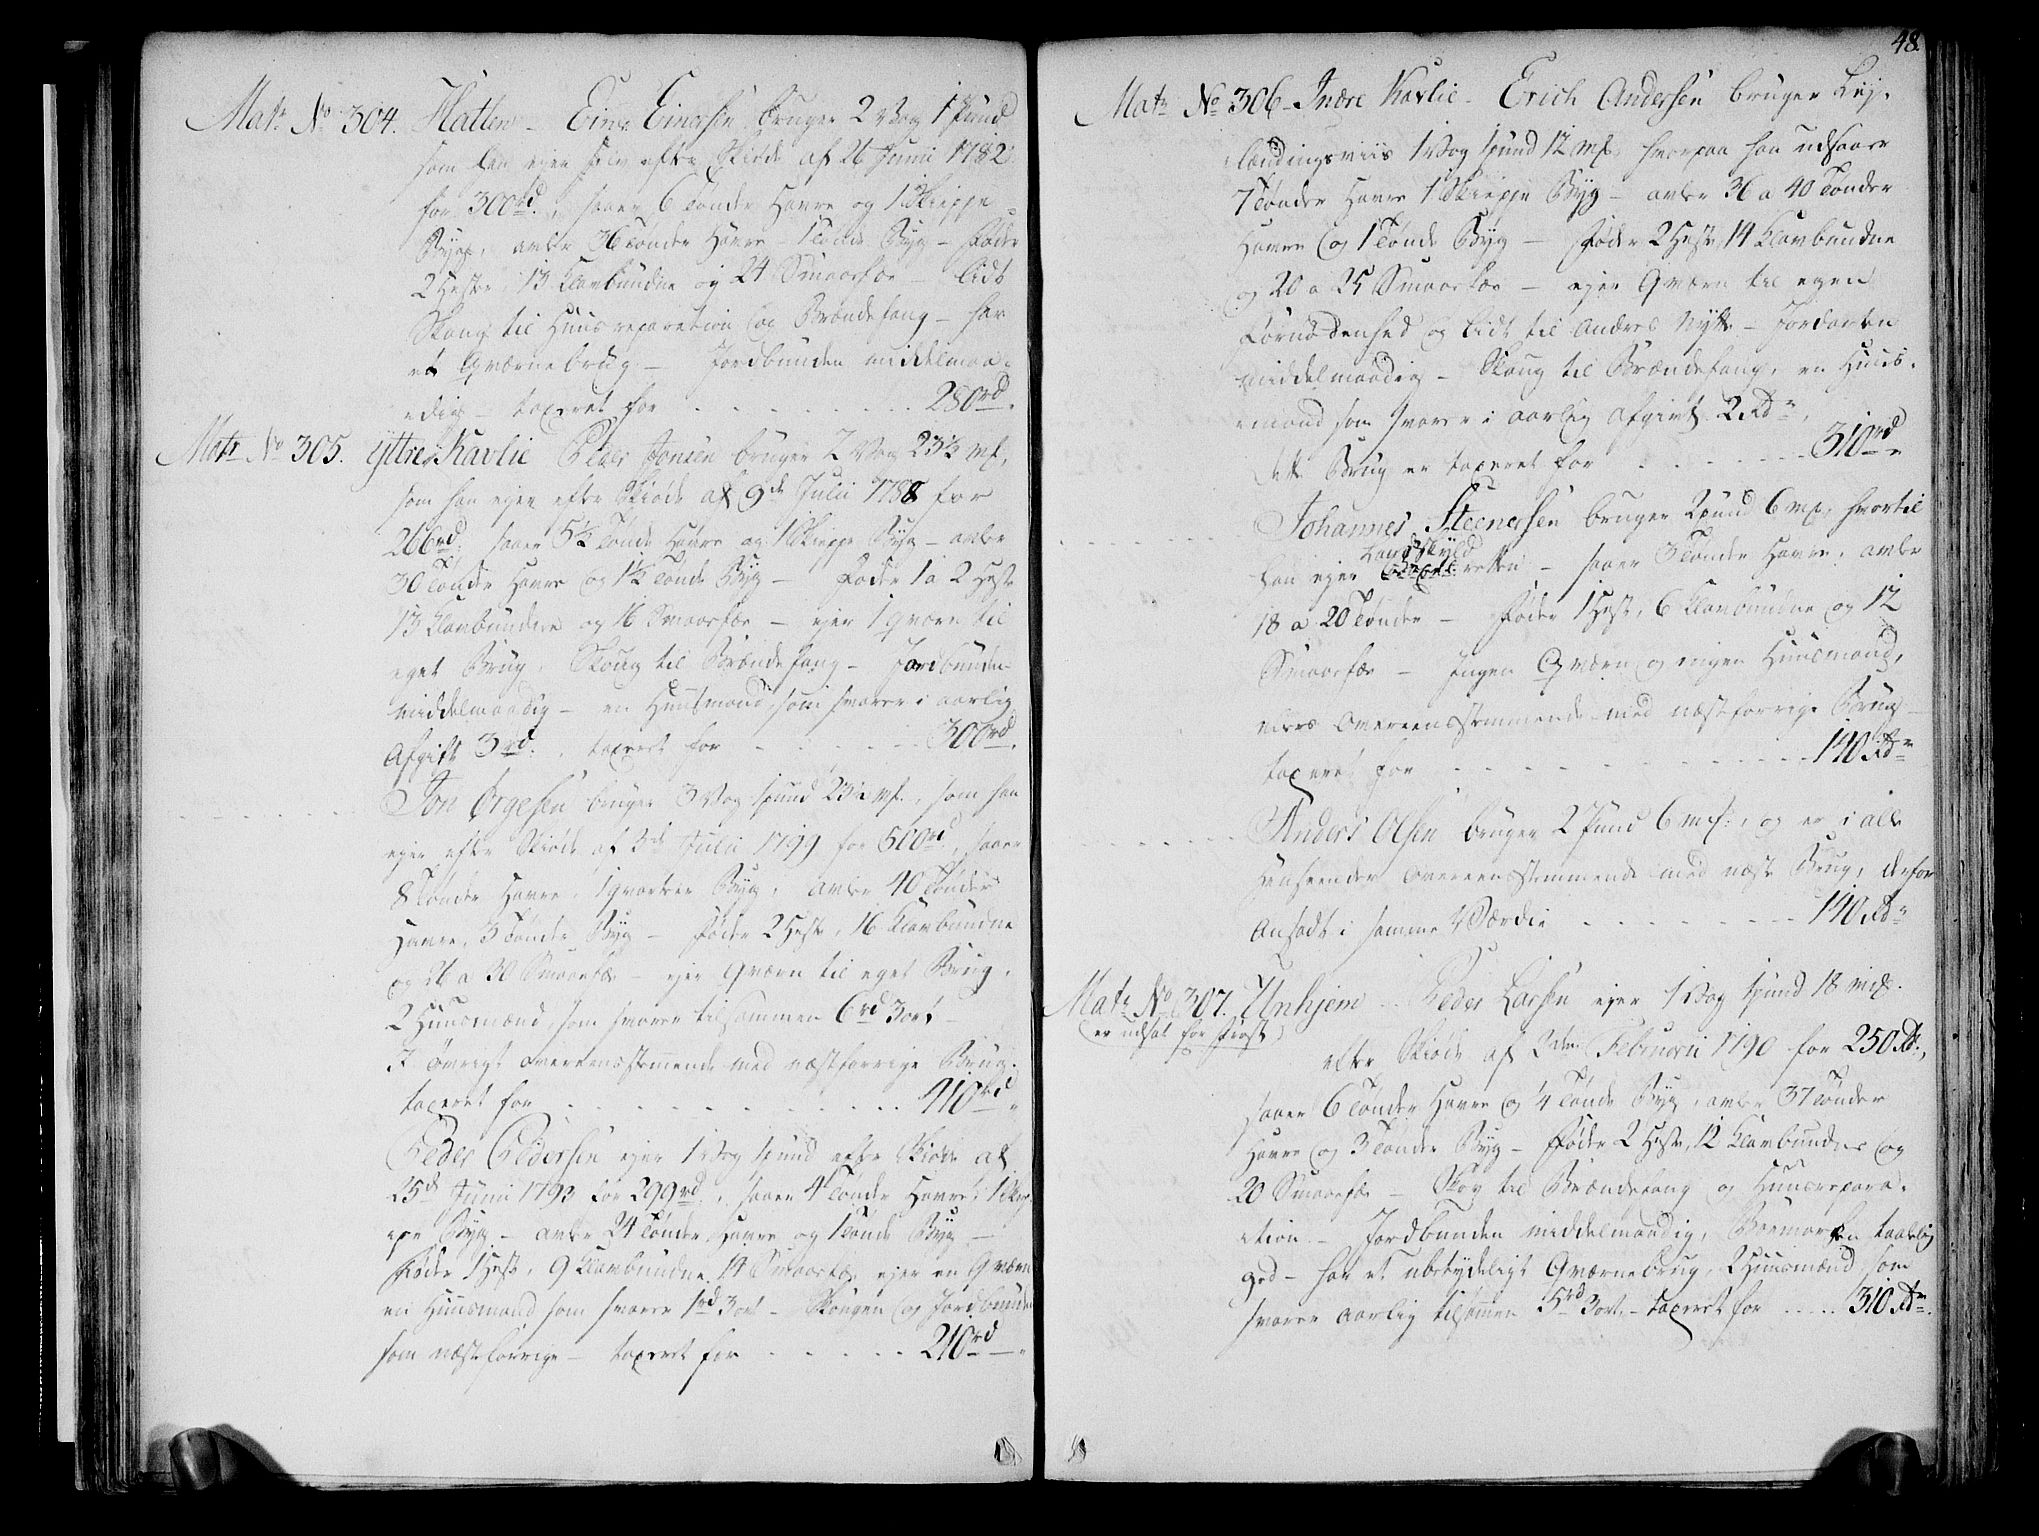 Matr No 304. Hatlen – Einer Einersen bruger 2 Vog 1 Pund
som han ejer selv efter Skiøde af 26 Junii 1782.
for 300rd., saaer 6 Tønder Havre og 1 Skieppe
Byg, avler 36 Tønder Havre – 1 Tønde Byg – Føder
2 Heste, 13 Klavbundne og 24 Smaafæ – lidt
Skoug til Huusreparation og Brændefang – har
et Qværnebrug – Jordbunden middelmaa-
dig – taxeret for . . . . . 280rd.
Matr No 305. Yttre Kavlie Peder Jonsen bruger 2 Vog 23½ mk,
som han ejer efter Skiøde af 9de Julii 1788 for
266rd. saaer 5½ Tønde Havre og 1 Skieppe Byg – avler
30 Tønder Havre og 1½ Tønde Byg – Føder 1 a 2 Heste
13 Klavbundne og 16 Smaafæ – ejer 1 Qværn til
eget Brug, Skoug til Brændefang – Jordbunden
middelmaadig – en Huusmand, som svarer i aarlig
Afgift 3rd., taxeret for . . . . . 300rd.
Jon Ørgesen bruger 3 Vog 1 pund 23½ mk., som han
ejer efter Skiøde af 3de Julii 1799 for 500rd., saaer
8 Tønder Havre, 1 qvarteer Byg, avler 40 Tønder
Havre, 3 Tønder Byg – Føder 2 Heste, 16 Klavbundne
og 26 a 30 Smaafæ – ejer Qværn til eget Brug,
2 Huusmænd, som svarer tilsammen 6rd 3ort –
I øvrigt overeensstemmende med næstforrige Brug.
taxeret for . . . . . 410rd
Peder Pedersen ejer 1 Vog 1 pund efter Skiøde af
25de Junii 1793 for 299rd., saaer 4 Tønder Havre, 1 Skiep-
pe Byg – avler 24 Tønder Havre og 1 Tønde Byg –
Føder 1 Hest, 9 Klavbundne, 14 Smaafæ, ejer en Qværn
en Huusmand som svarer 1rd 3ort – Skougen og Jordbunden
som næstforrige – taxeret for . . . . . 210rd
48.
Matr No 306 – Indre Kavlie – Erich Andersen bruger Lej-
lændingsviis 1 Vog 1 pund 12 mk, hvorpaa han udsaaer
7 Tønder Havre 1 Skieppe Byg – avler 36 a 40 Tønder
Havre og 1 Tønde Byg – Føder 2 Heste, 14 Klavbundne
og 20 a 25 Smaafæ – ejer Qværn til egen
Fornødenhed og lidt til Andres Nytte – Jordarten
middelmaadig – Skoug til Brændefang, en Huus-
mand som svarer i aarlig Afgivt 2 Rdr,
dette Brug er taxeret for . . . . . 310rd
Johannes Steenersen bruger 2 pund 6 mk, hvortil
Landskyld
han ejer retten – saaer 3 Tønder Havre, avler
18 a 20 Tønder – Føder 1 Hest, 6 Klavbundne og 12
Smaafæ – Ingen Qværn og ingen Huusmand,
ellers overeensstemmende med næstforrige Brug
taxeret for . . . . . 140 Rdr
Anders Olsen bruger 2 Pund 6 mk:, og er i alle
Henseender overeensstemmende med næste Brug, derfor
Ansadt i samme Værdie . . . . . 140 Rdr
Matr No 307. Unhjem – Peder Larsen ejer 1 Vog 1 pund 18 mk.
(er udsat for Frost)
efter Skiøde af 2den Februarii 1790 for 250 Rd.,
saaer 6 Tønder Havre og ¼ Tønde Byg, avler 37 Tønder
Havre og 3 Tønder Byg – Føder 2 Heste, 12 Klavbundne og
20 Smaafæ – Skov til Brændefang og Huusrepara-
tion – Jordbunden middelmaadig, Boemarken taalelig
god – har et ubetydeligt Qværnebrug, 2 Huusmænd, som
svarer aarlig tilsamen 5rd 3ort – taxeret for . . . . . 310 Rdr.